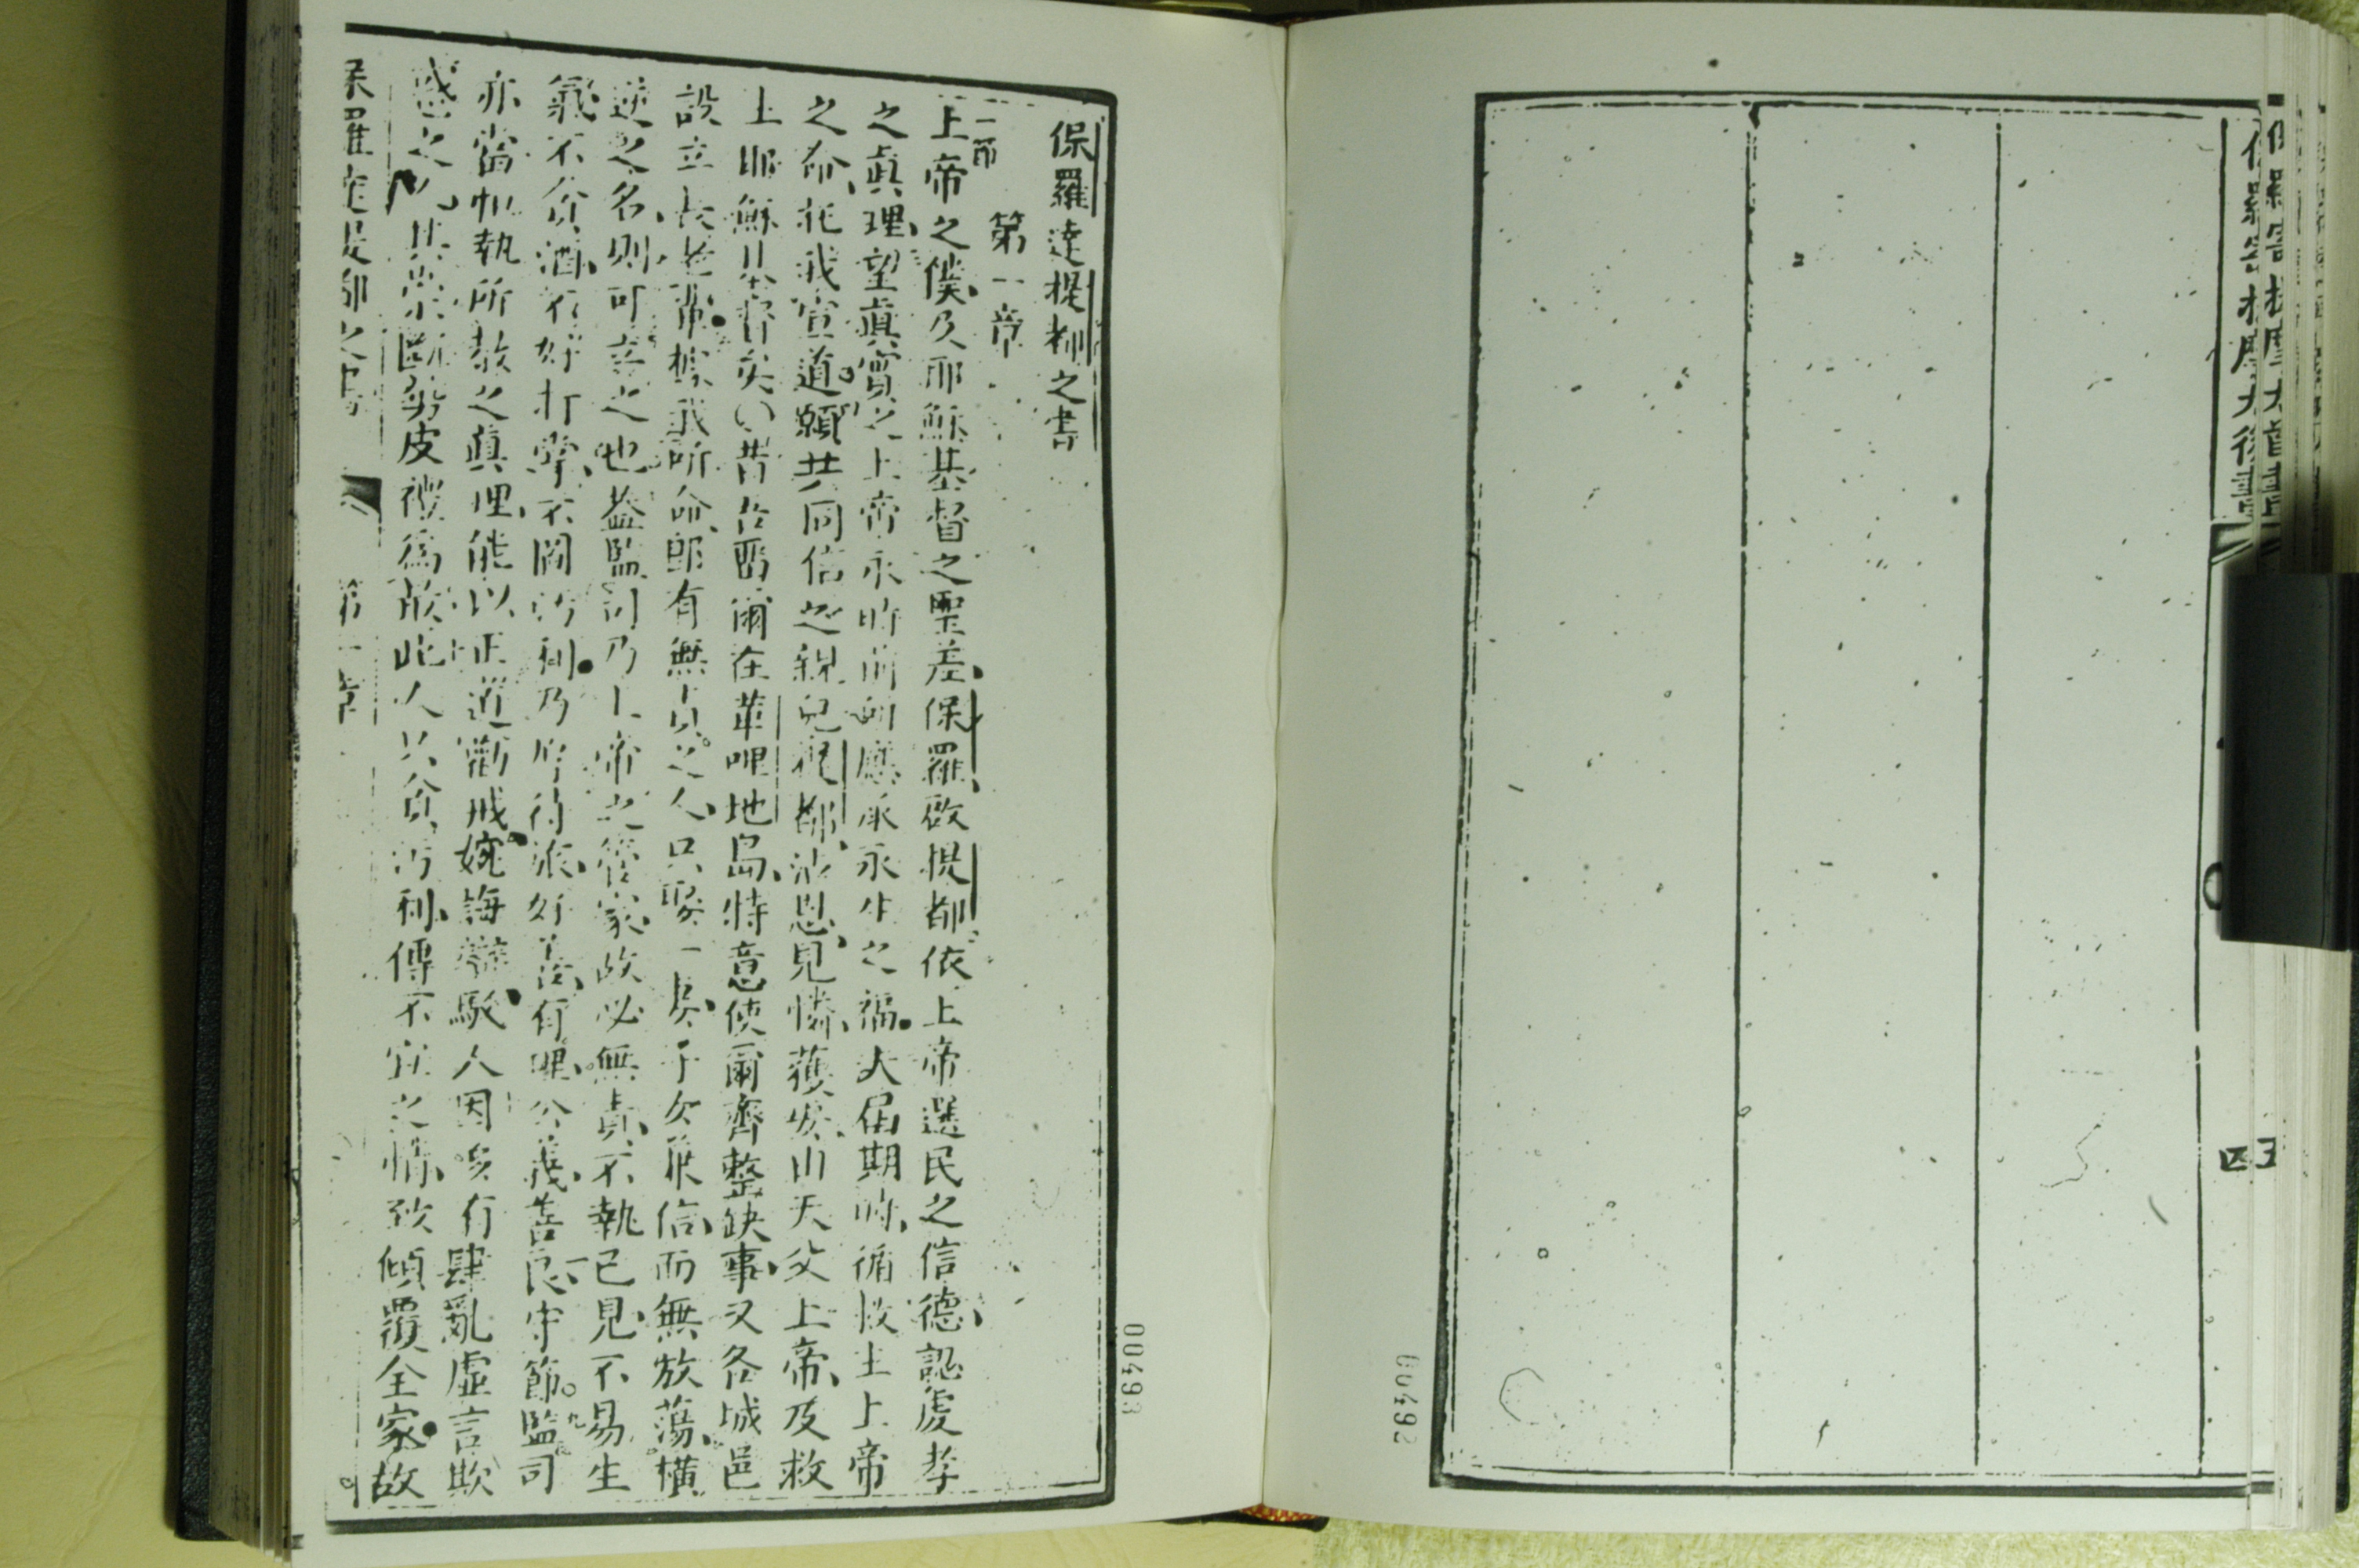 保羅寄提摩太後書
四
00492
保羅達提都之書
第一章
一節
上帝之僕及耶穌基督之聖差保羅啟提都依上帝選民之信德認虔孝
之眞理望眞實之上帝永時前所應承永生之福大屆期時循救主上帝
之命托我宣道願共同信之親兒提都沾恩見憐獲安由天父上帝及救
主耶穌基督矣昔在留爾在革哩地島特意使爾齊整缺事又各城邑
設立長老卽據我所命卽有無責之人只娶一妻子女兼信而無放蕩橫
逆之名則可立之也蓋監司乃上帝之管家故必無責不執己見不易生
氣不貪酒不好打擊不圖污利乃好待旅好善有理公義善良守節監司
亦當執所教之眞理能以正道勸戒婉誨辯駁人因多有肆亂虛言欺
惑之人其當斷勢皮禮爲故此人只貪污利傳不宜之情致傾覆全家故
保羅達提都之書
第一章
00493